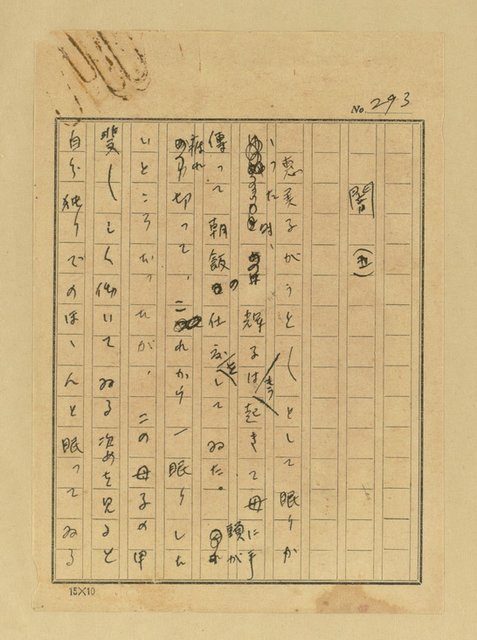 No. 293
闇 (五)
恵美子がうと〳〵として眠りか
ゝった時、輝子はもう起きて母に手
傳って朝飯の仕度をしてゐた。頭が
疲れ切って、これから一眠りした
いところだったが、この母子の甲
斐〳〵しく働いてゐる姿を見ると
自分独りでのほゝんと眠ってゐる
15×10